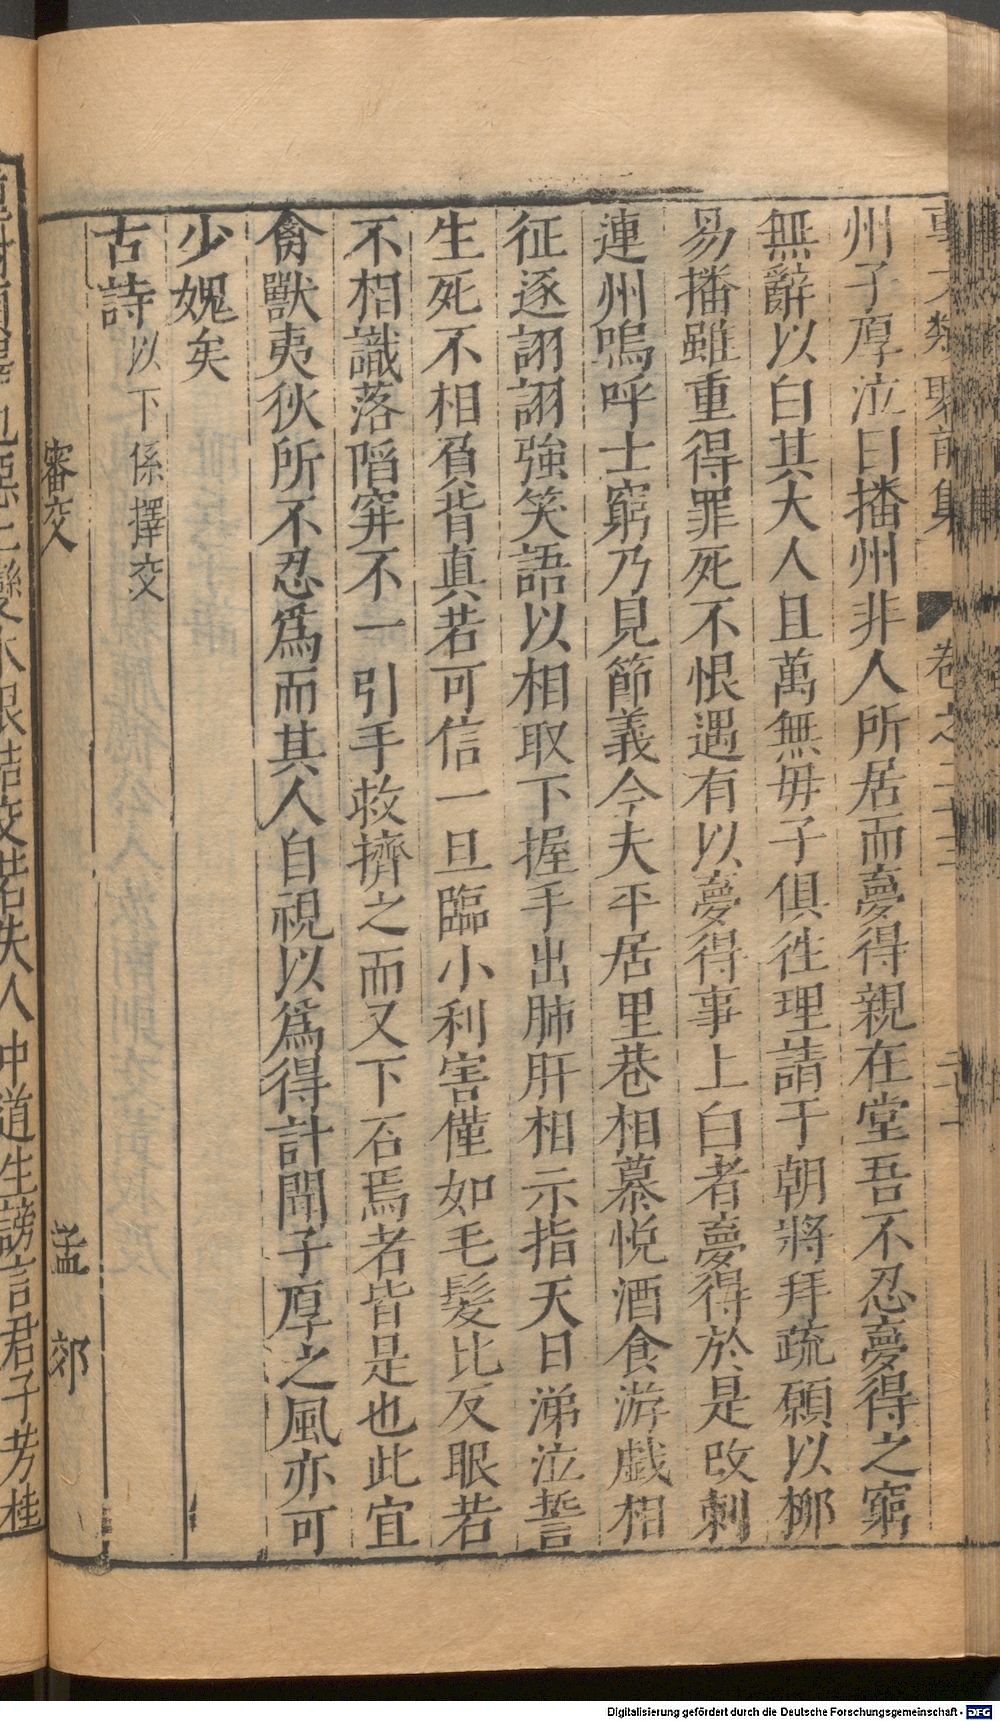 事文類聚前集 卷之二十三 二十一
州子厚泣曰播州非人所居而夢得親在堂吾不忍夢得之窮
無辭以白其大人且萬無毋子俱徃理請于朝將拜疏願以柳
昜播雖重得罪死不恨遇有以夢得事上白者夢得於是改刺
連州嗚呼士窮乃見節義今夫平居里巷相慕悅酒食游戲相
征逐詡詡強笑語以相取下握手出肺肝相示指天日涕泣誓
生死不相負背真若可信一旦臨小利害僅如毛髮比反眼若
不相識落陷穽不一引手救擠之而又下石焉者皆是也此宜
禽獸夷狄所不忍爲而其人自視以爲得計聞子厚之風亦可
少媿矣
古詩 以下係擇交
審交 孟郊
結交若失人中道生謗言君子芳桂
Digitalisierung gefördert durch die Deutsche Forschungsgemeinschaft - DFG